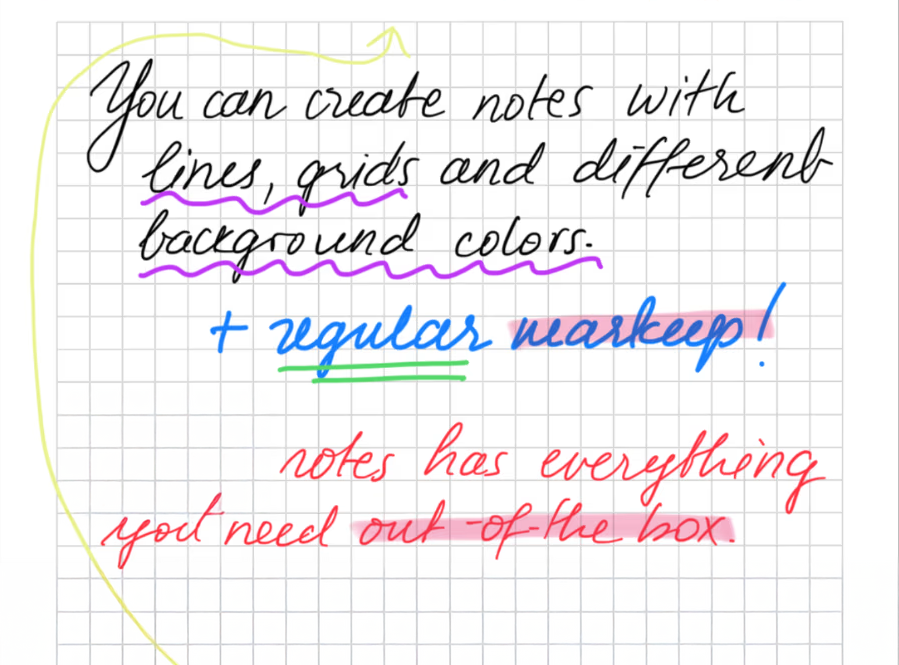 You can create notes with
lines, grids and different
background colors.
+ regular markup!
notes has everything
you need out-of-the box.